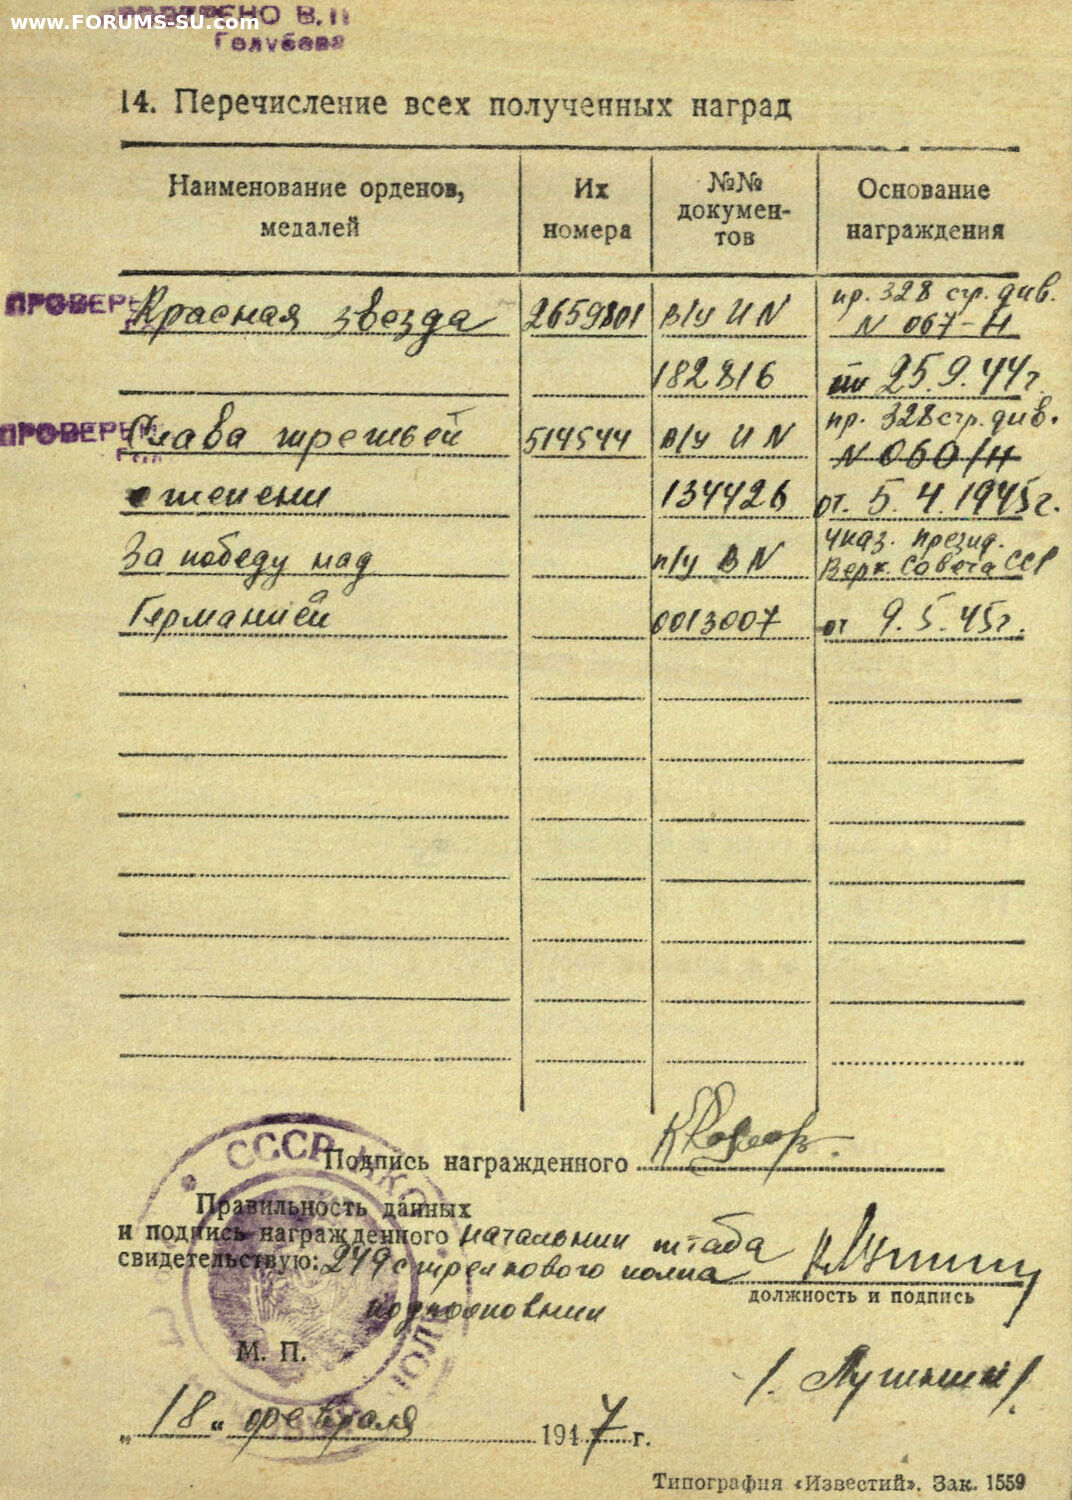 www.FORUMS-SU.com
ПРОВЕРЕНО В.П
Голубева
14. Перечисление всех полученных наград
Наименование орденов, медалей
Их номера
№№ докумен-
тов
Основание награждения
ПРОВЕРЕ
Красная звезда 2659801 в/у И N пр. 328 стр. див.
N 067-Н
182816 от 25.9.44г
ПРОВЕРЕН
Слава третьей 514544 в/у И N пр. 328 стр. див.
N 060/Н
степени 134426 от. 5. 4. 1945г.
За победу над п/у В N Указ. Презид.
Верх. Совета ССР
Германией 0013007 от 9.5.45г.
СССР
Подпись награжденного
Правильность данных
и подпись награжденного начальник штаба
свидетельствую: 249 стрелкового полка
должность и подпись
подполковник
М. П.
/. Лушкин /.
„ 18 “ февраля 1947 г.
Типография «Известий». Зак. 1559